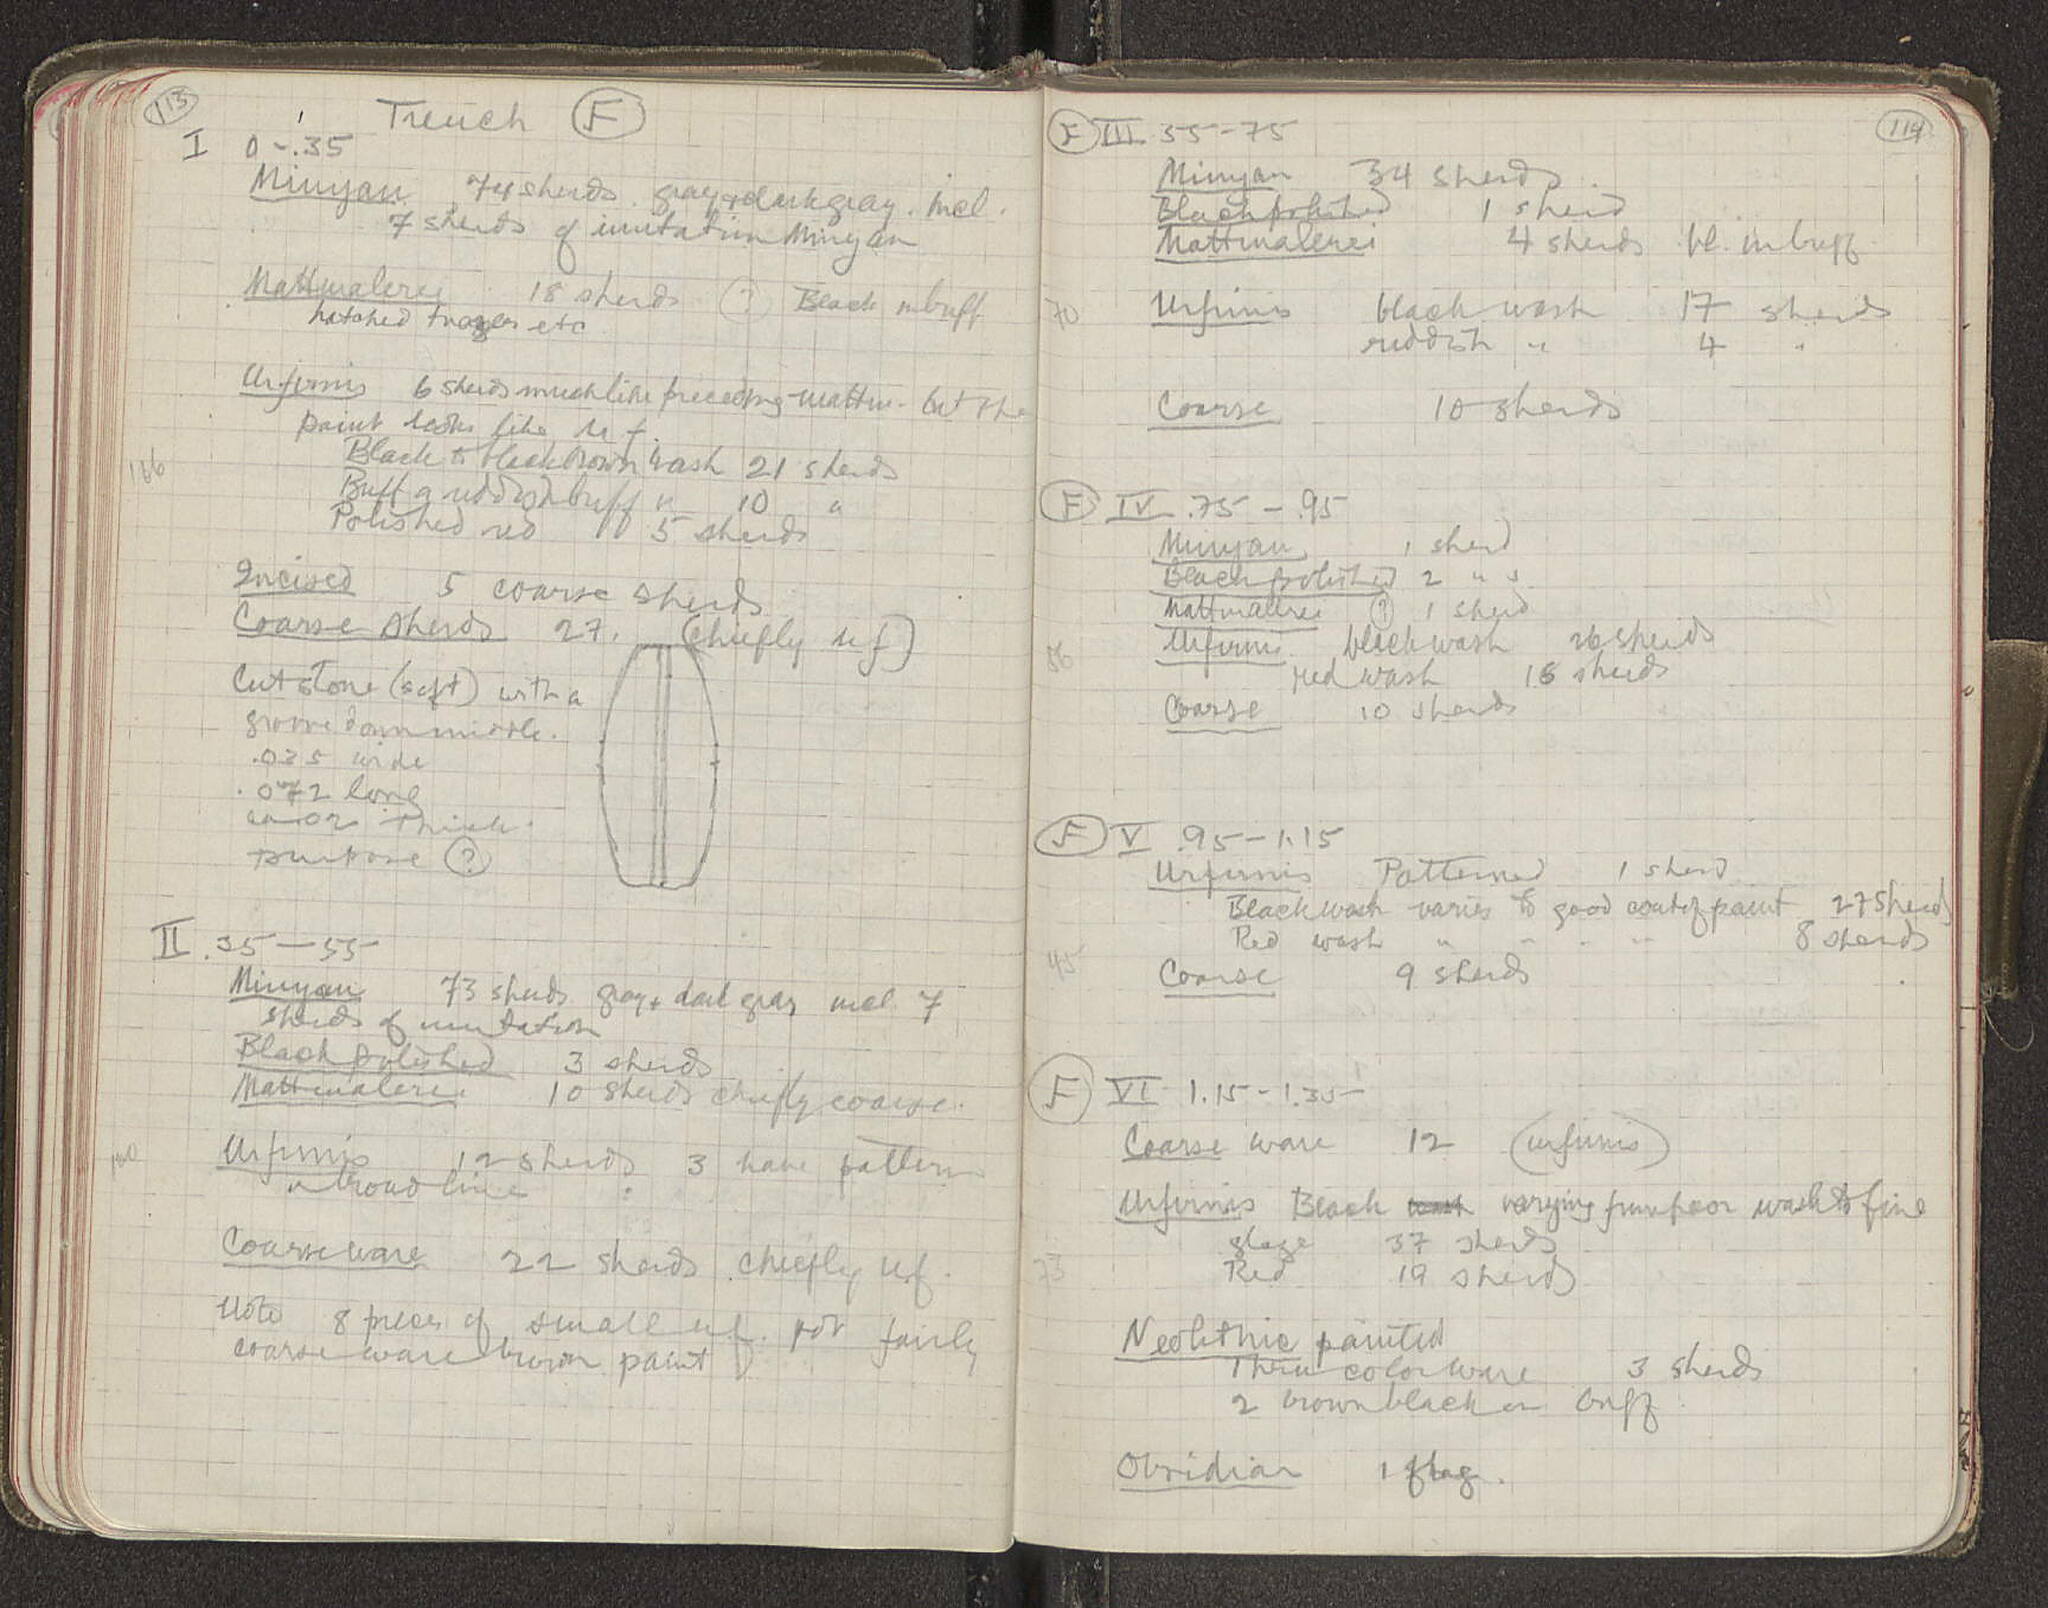 113
Trench F
I 0-.35
Minyan 74 sherds gray + dark gray. incl.
7 sherds of imitation Minyan
Mattmalerei 18 sherds ? Black on buff
hatched etc
Urfirnis 6 sherds much like preceding mattm- but the
paint looks like u f.
166
Black to black brown wash 21 sherds
Buff & reddish buff " 10 "
Polished red 5 sherds
Incised 5 coarse sherds
Coarse sherds 27. (chiefly u f)
Cut stone (soft) with a
groove down middle.
.035 wide
.072 long
ca .02 thick.
purpose ?
II .35-55
Minyan 73 sherds gray + dark gray incl. 7
sherds of imitation
Black polished 3 sherds
Mattmalerei 10 sherds chiefly coarse.
Urfirnis 12 sherds 3 have pattern
broad line
Coarse ware 22 sherds chiefly u.f.
Note 8 pieces of small u.f. pot fairly
coarse ware brown paint
114
F III 35-75
Minyan 34 sherds
Black polished 1 sherd
Mattmalerei 4 sherds bl. on buff
70
Urfirnis black wash 17 sherds
reddish " 4 "
Coarse 10 sherds
F IV .75-.95
Minyan 1 sherd
Black polished 2 " s
Mattmalerei ? 1 sherd
Urfirnis black wash 26 sherds
56
red wash 16 sherds
Coarse 10 sherds
F V .95-1.15
Urfirnis Patterned 1 sherd
Black wash varies to good coat of paint 27 sherds
Red wash " " " " 8 sherds
45
Coarse 9 sherds
F VI 1.15-1.35
Coarse ware 12 (urfirnis)
Urfirnis Black wash varying from poor wash to fine
glaze 37 sherds
73
Red 19 sherds
Neolithic painted
Three color ware 3 sherds
2 brown black on buff
Obsidian 1 frag.